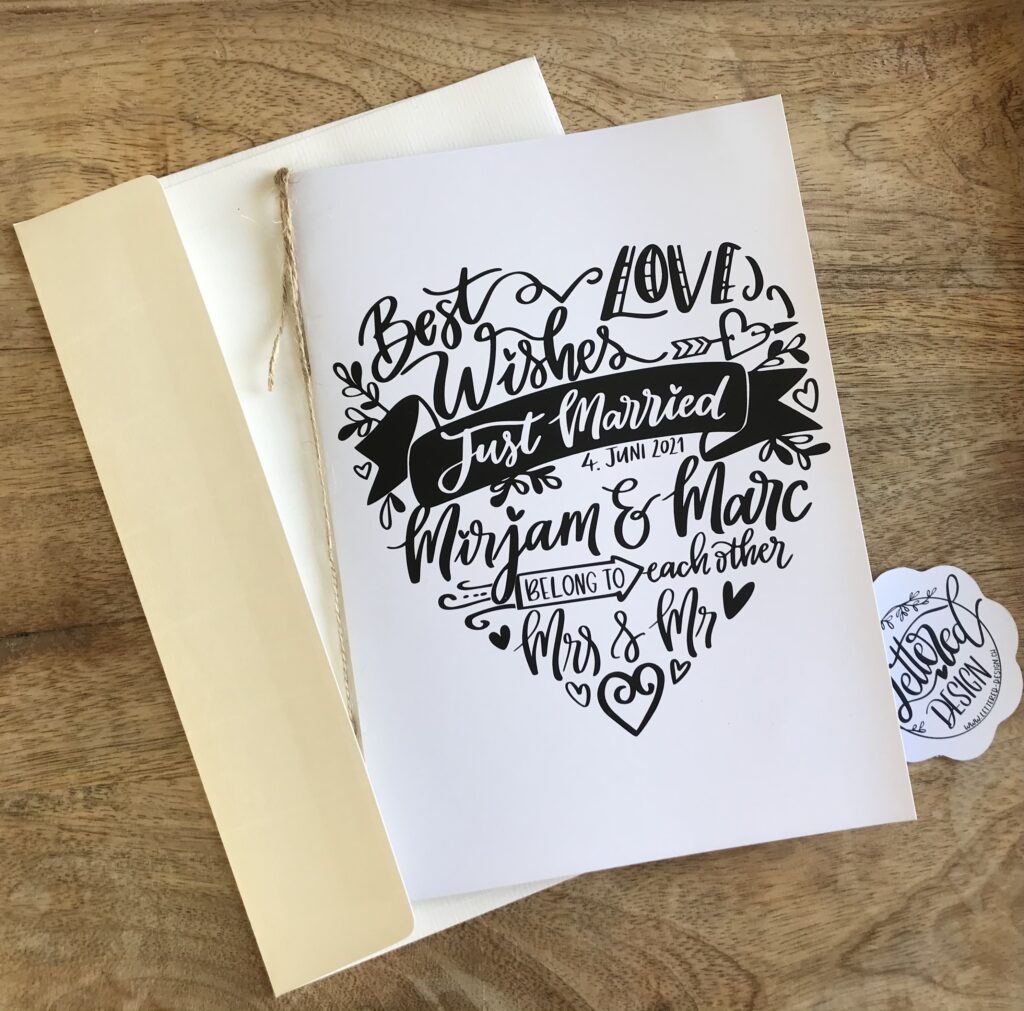 Best LOVE
Wishes
Just Married
4. JUNI 2021
Mirjam & Marc
BELONG TO each other
Mrs & Mr
Lettered
DESIGN
WWW.LETTERED-DESIGN.CH